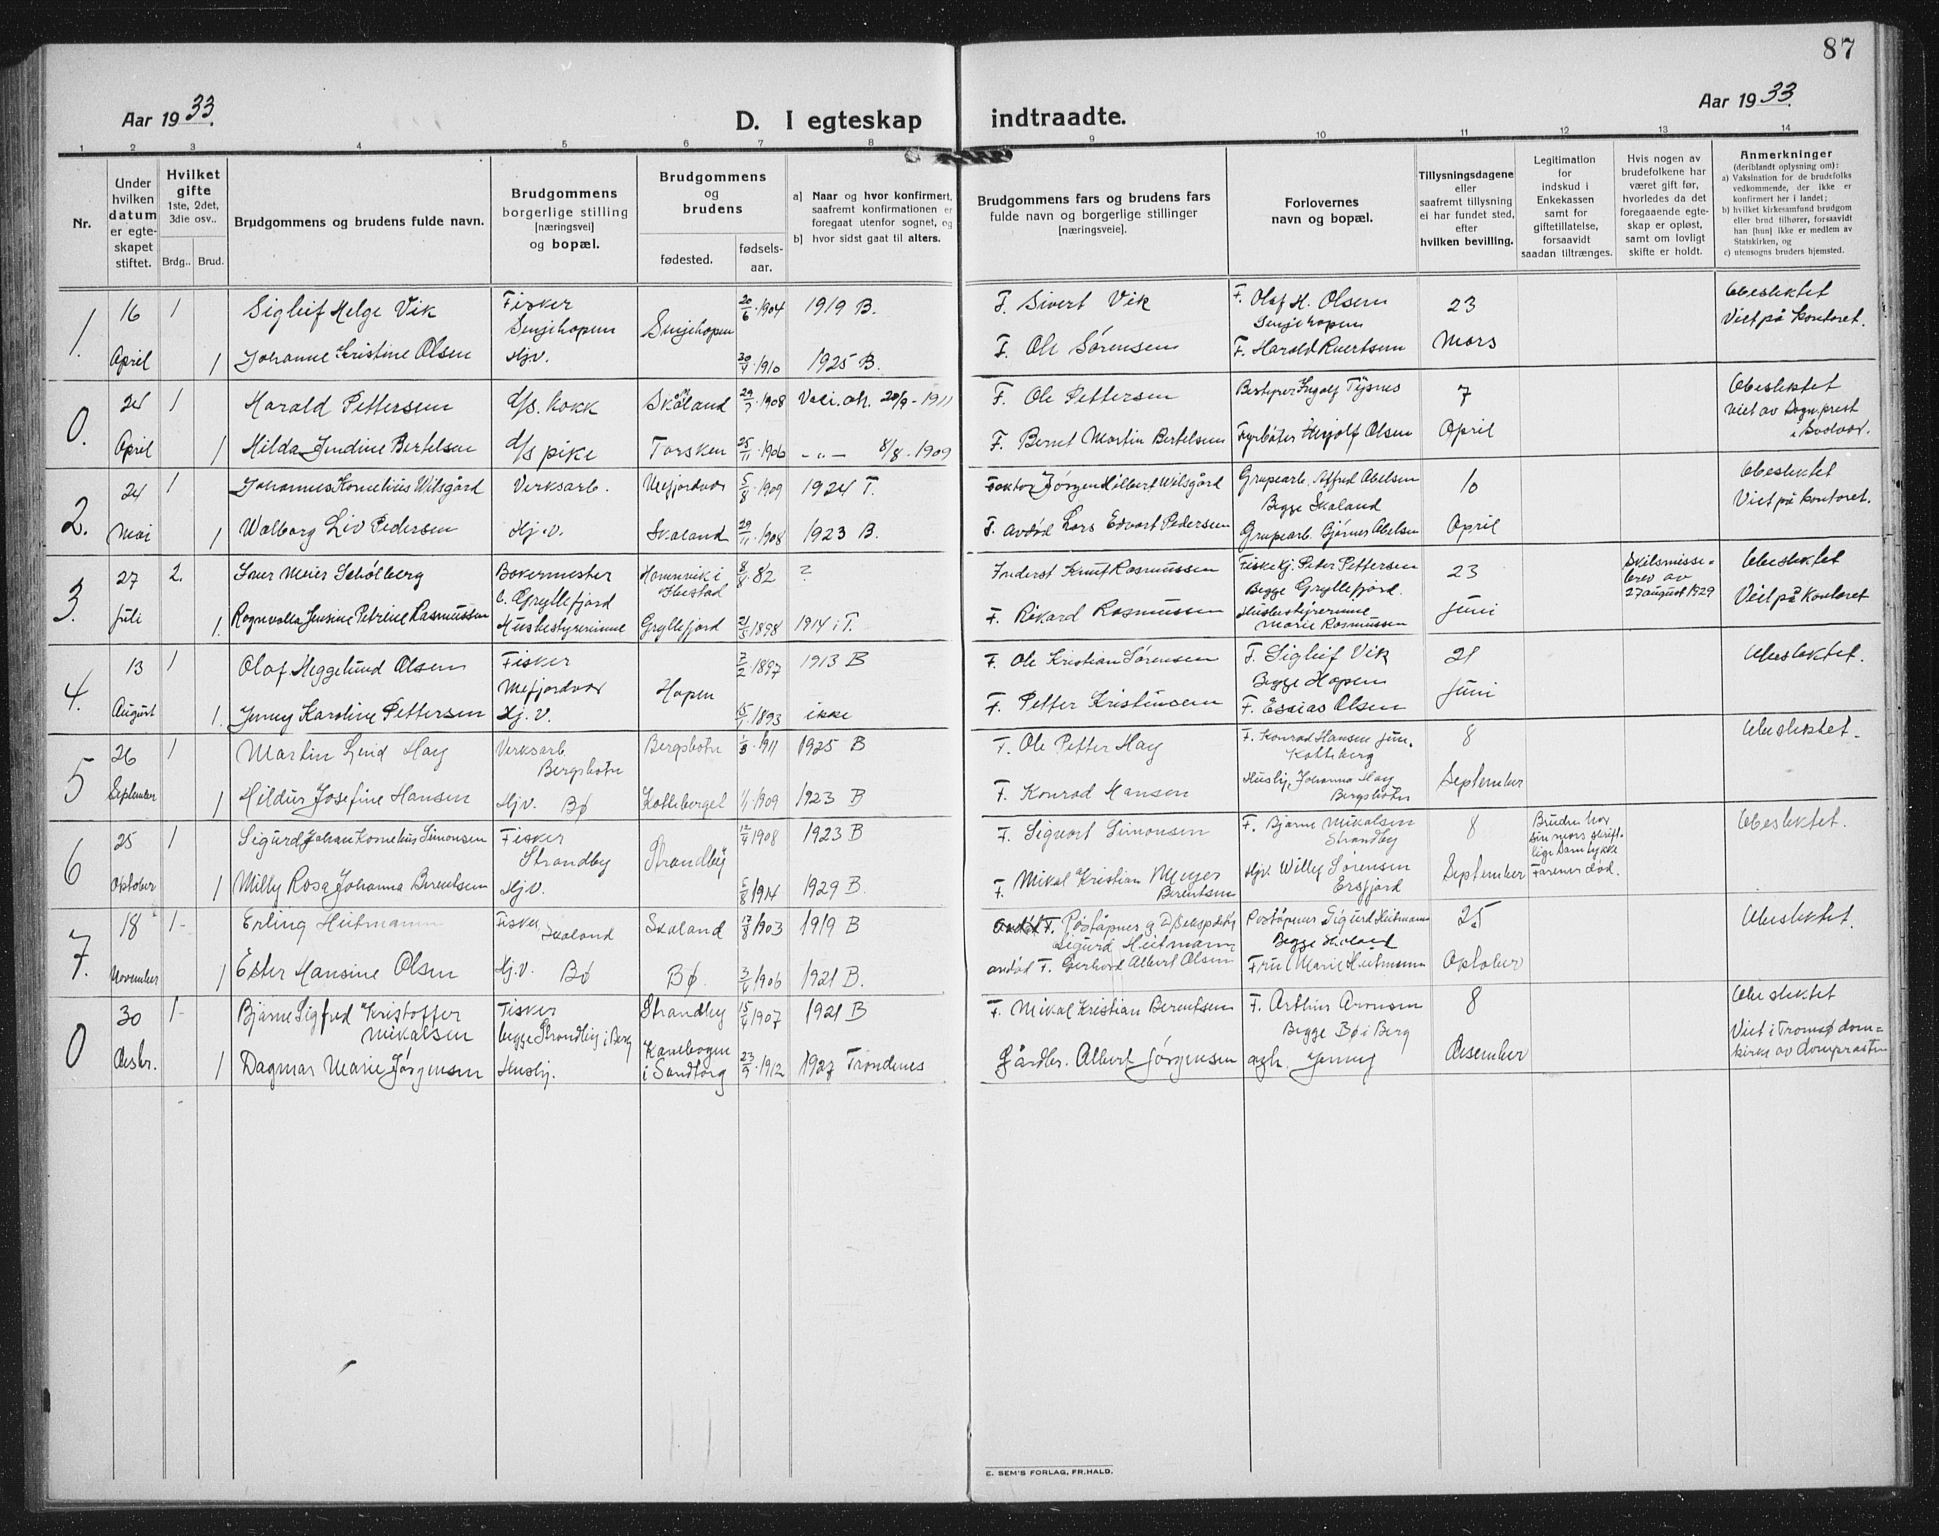 87
Aar 1933.
D. I egteskap indtraadte.
Aar 1933.
1 2 3 4 5 6 7 8 9 10 11 12 13 14
Nr.
Under hvilken datum er egteskapet stiftet.
Hvilket gifte 1ste, 2det, 3die osv..
Brdg.. Brud.
Brudgommens og brudens fulde navn.
Brudgommens borgerlige stilling [næringsvei] og bopæl.
Brudgommens og brudens
fødested.
fødselsaar.
a) Naar og hvor konfirmert, saafremt konfirmationen er foregaat utenfor sognet, og
b) hvor sidst gaat til alters.
Brudgommens fars og brudens fars fulde navn og borgerlige stillinger [næringsveie].
Forlovernes navn og bopæl.
Tillysningsdagene eller saafremt tillysning ei har fundet sted, efter hvilken bevilling.
Legitimation for indskud i Enkekassen samt for giftetillatelse, forsaavidt saadan tiltrænges.
Hvis nogen av brudefolkene har været gift før, hvorledes da det foregaaende egteskap er opløst, samt om lovligt skifte er holdt.
Anmerkninger
(deriblandt oplysning om):
a) Vaksination for de brudefolks vedkommende, der ikke er konfirmert her i landet;
b) hvilket kirkesamfund brudgom eller brud tilhører, forsaavidt han [hun] ikke er medlem av Statskirken, og
c) utensogns bruders hjemsted.
1. 16 April 1 Sigleif Helge Vik Fisker Senjehopen Senjehopen 20/6 1904 1919 B. F. Sivert Vik F. Olaf H. Olsen Senjehopen 23 Mars Ubeslektet Viet på kontoret.
1 Johanne Kristine Olsen Hjv. 1910 1925 B. F. Ole Sørensen F. Harald
0. 24 April 1 Harald Pettersen d/s. kokk Skaland 1908 20/9-1911 F. Ole Pettersen Bestyrer Ingolf Tysnes 7 April Ubeslektet Viet av Sogneprest i Svolvær.
1 Hilda Jendine Bertelsen d/s pike Torsken 25/11 1906 -"- 8/8-1909 F. Bernt Martin Bertelsen Fyrbøter Herjolf Olsen
2. 24 Mai 1 Johannes Kornelius Wilsgård Verksarb. Mefjordvær 5/8 1909 1924 T. Faktor Jørgen Hilbert Wilsgård Grupearb. Alfred Abelsen Begge Skaland 10 April Ubeslektet Viet på kontoret.
1 Walborg Liv Pedersen Hj.v. Skaland 29/11 1908 1923 B. F. avdød Lars Edvart Pedersen Grupearb. Bjørnes Abelsen
3. 27 Juli 2. Meier Schølberg Bakermester b. Gryllefjord Hamnvik i Ibestad 8/8 82 ? Knut Rasmussen Fiskekj. Peter Pettersen Begge Gryllefjord. 23 Juni Skilsmissebrev av 27 august 1929 Ubeslektet Viet på kontoret
1. Ragnvalla Jensine Petrine Rasmussen Husbestyrerinne Gryllefjord 21/5 1898 1914 i T. F. Rikard Rasmussen Husbestyrerinne Marie Rasmussen
4. 13 August 1 Olaf Meggelund Olsen Fisker Mefjordvær Hopen 2/2 1897 1913 B F. Ole Kristian Sørensen F. Sigleif Vik Begge Hopen 21 Juni Ubeslektet.
1. Jenny Karoline Pettersen Hj.V. 1893 ikke F. Petter Kristensen F. Esaias Olsen
5 26 September 1 Martin Lind Hay Verksarb Bergsbotn Bergsbotn 1911 1925 B F. Ole Petter Hay F. Konrad Hansen jun. Kattsberg 8 September Ubeslektet.
1 Hildur Josefine Hansen Hjv. Bø 1909 1923 B F. Konrad Hansen Husbj. Johanna Hay Bergsbotn
6 25 Oktober 1 Sigurd Johan Kornelius Simonsen Fisker Strandby Strandby 12/4 1908 1923 B F. Sigvart Simonsen F. Bjarne Mikalsen Strandby 8 September Bruden har sin mors skriftlige samtykke Farener død. Ubeslektet.
1 Milly Rosa Johanna Berentsen Hjv. 5/8 1914 1929 B. F. Mikal Kristian Meyer Berentsen Hjv. Willy Sørensen Ersfjord
7. 18 November 1- Erling Heitmann Fisker Skaland Skaland 17/8 1903 1919 B avdød F. Poståpner Sigurd Heitmann Poståpner Sigurd Heitmann Begge Skaland 25 Oktober Ubeslektet.
1 Ester Hansine Olsen Hj.V. Bø Bø. 1906 1921 B. avdød F. Gerhard Albert Olsen Fru Marie Heitmann
0 30 Desbr. 1- Bjarne Sigfred Kristoffer Mikalsen Fisker begge Strandby i Berg Strandby 15/4 1907 1921 B F. Mikal Kristian Berentsen F. Arthur Aronsen Begge Bø i Berg 8 Desember Ubeslektet Viet i Tromsø domkirke av domprosten
1 Dagmar Marie Jørgensen Husbj. Kanebogen i Sandtorg 23/9 1912 1927 Trondenes Gårdbr. Albert Jørgensen agh. Jenny
E. SEM'S FORLAG, FR.HALD.